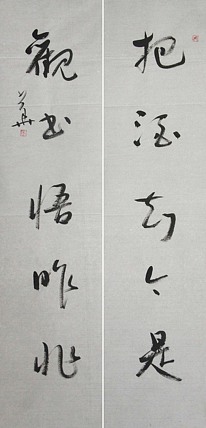 把酒知今是
觀書悟昨非